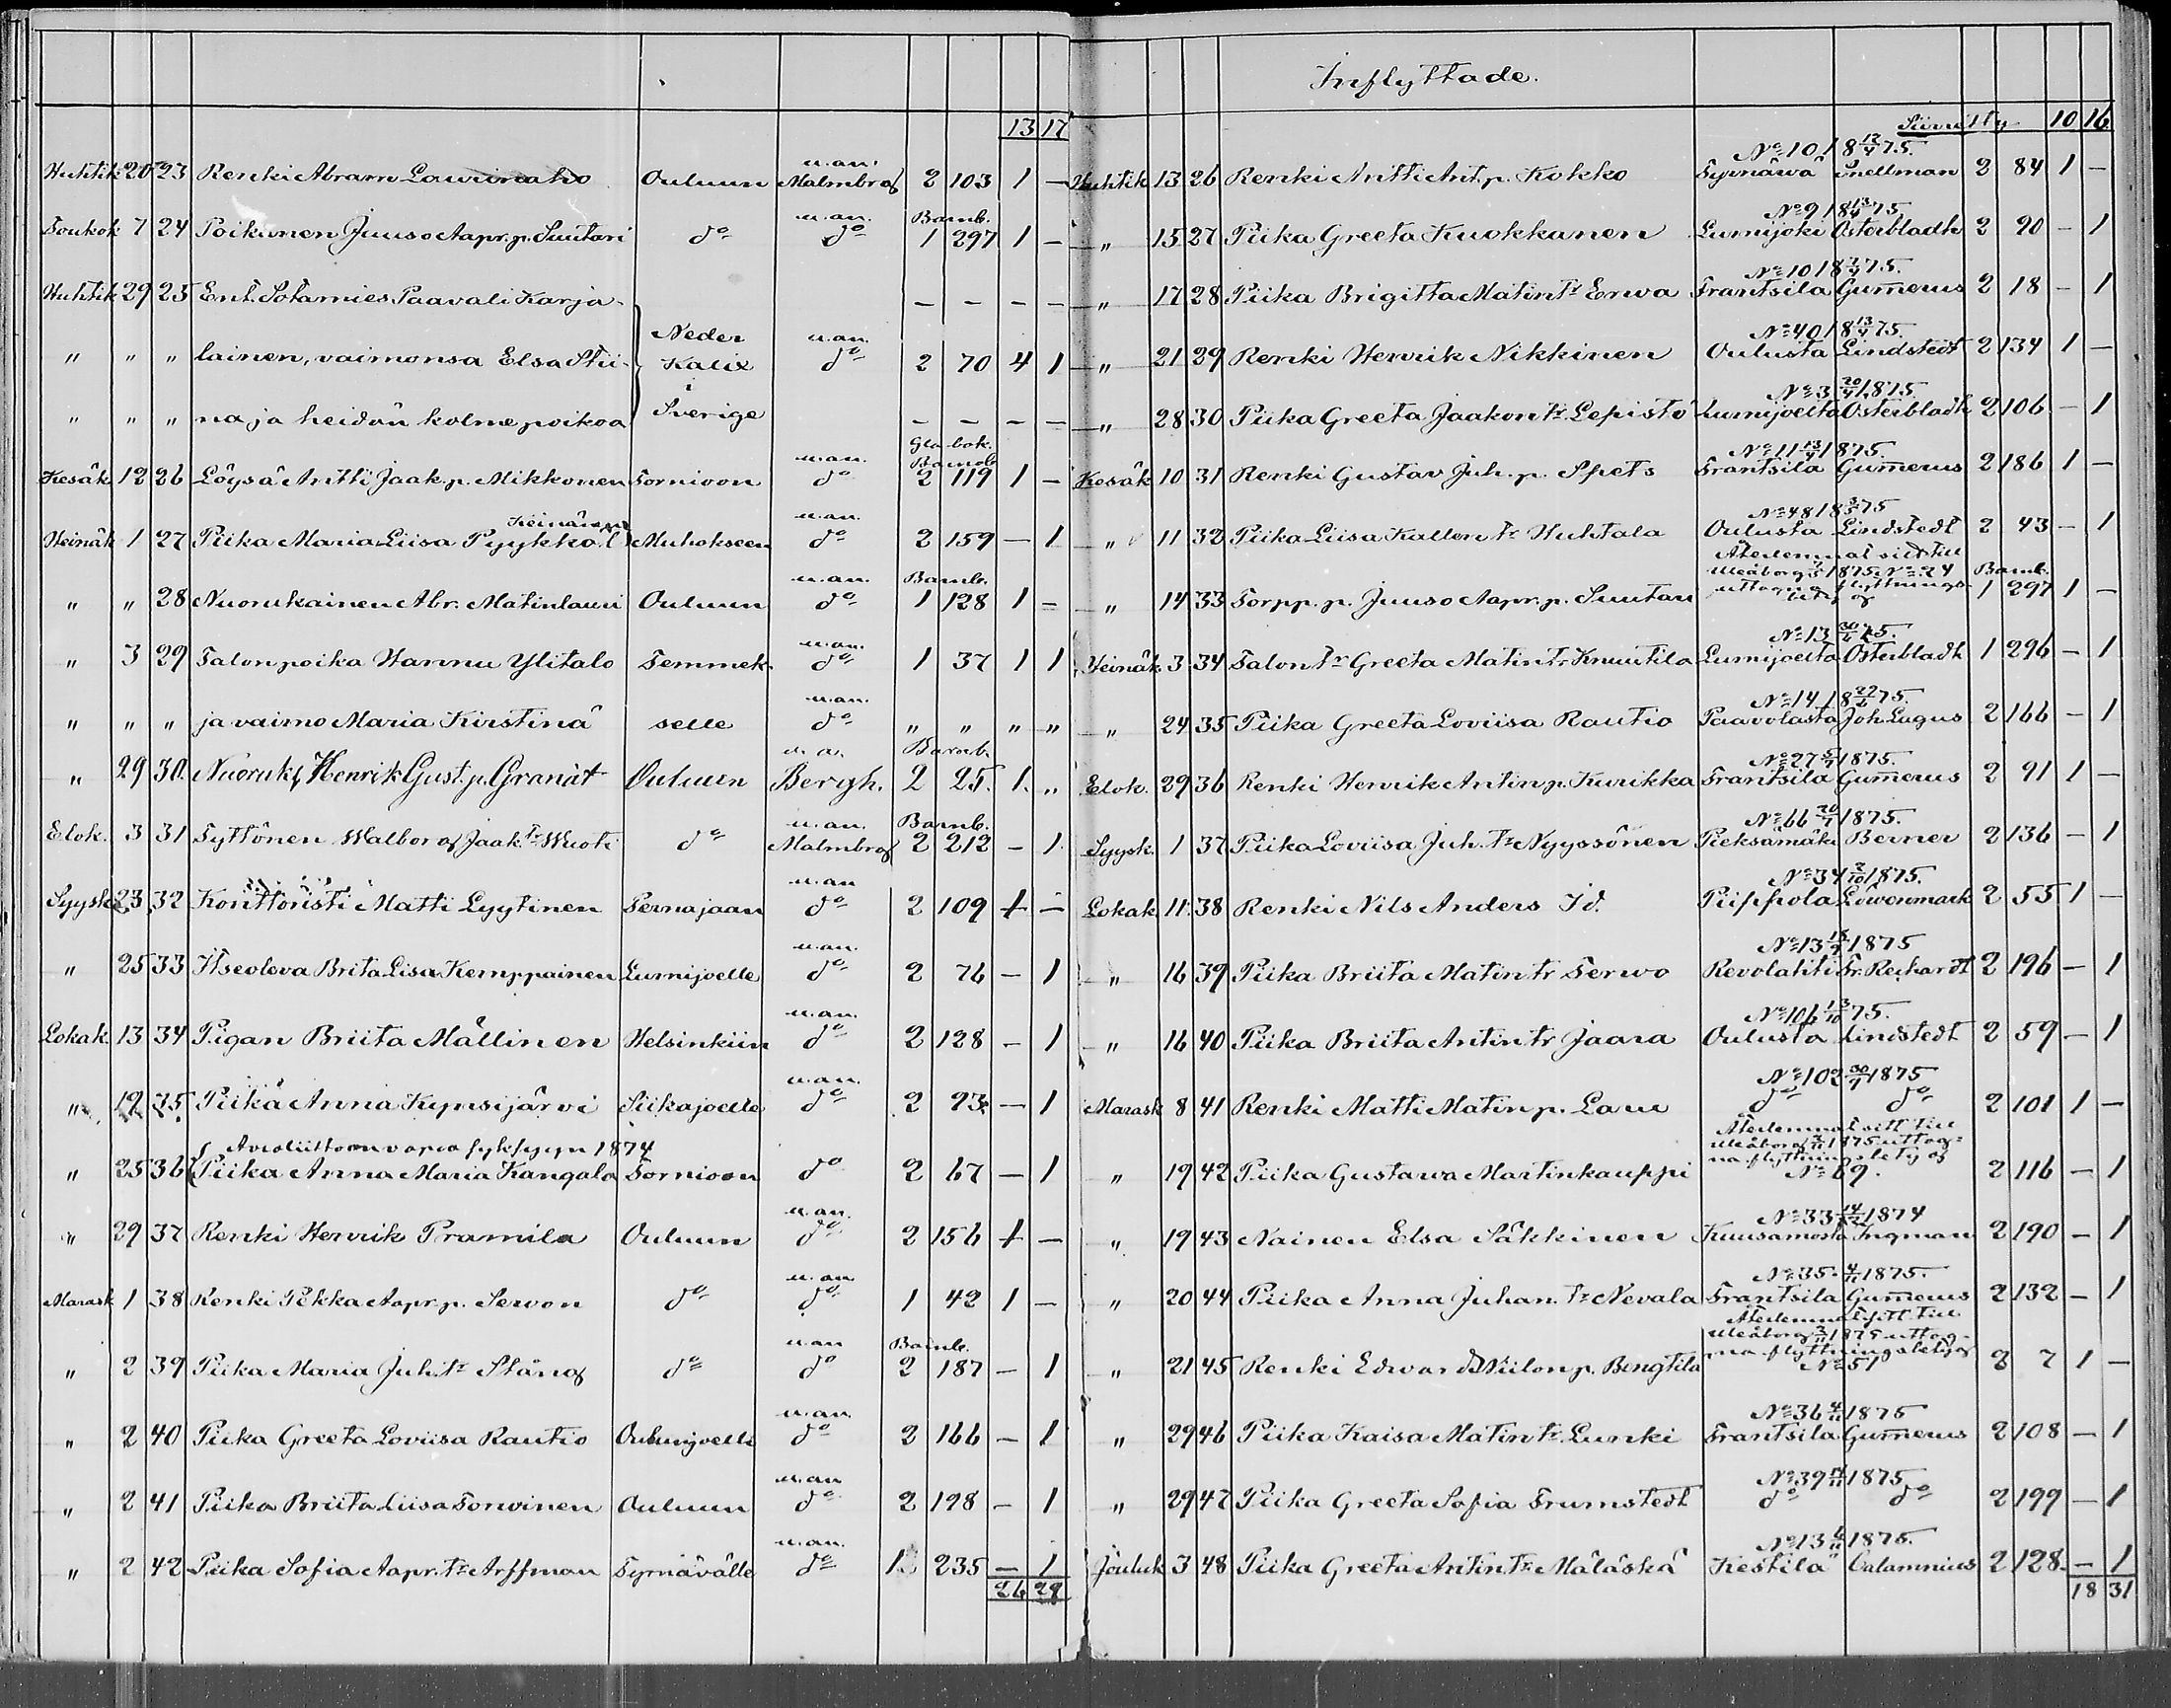 Inflyttade.
13 17
Siirretty 10 16
Huhtik 20 23 Renki Abram Laurinaho Ouluun u. an. Malmbrog 2 103 1 —
Toukok 7 24 Poikanen Juuso Aapr. p. Suutari do u. an. do Barnb. 1 297 1 —
Huhtik 29 25 Ent. Sotamies Paavali Karja- — — — —
" " " lainen, vaimonsa Elsa Stii- Neder Kalix i u. an. do 2 70 4 1
" " " na ja heidän kolme poikoa Sverige — — — —
Kesäk 12 26 Löysä Antti Jaak. p. Mikkonen Tornioon u. an. do Barnb. 2 119 1 —
Heinäk 1 27 Piika Maria Liisa Pyykkö l. Keinänen Muhokseen u. an. do 2 159 — 1
" " 28 Nuorukainen Abr. Matinlauri Ouluun u. an. do Barnb. 1 128 1 —
" 3 29 Talonpoika Hannu Ylitalo Temmek- u. an. do 1 37 1 1
" " " ja vaimo Maria Kirstinä selle u. an. do " " " "
" 29 30. Nuoruk. Henrik Gust. p. Granat Ouluun u. a. Bergh. Barnb. 2 25. 1. "
Elok. 3 31 Tyttönen Walborg Jaak. tr Wuoti do u. an. Malmbrog Barnb. 2 212 — 1
Syysk 23 32 Konttoristi Matti Lyytinen Pernajaan u. an do 2 109 1 —
" 25 33 Itseoleva Brita Lisa Kemppainen Lumijoelle u. an. do 2 76 — 1
Lokak. 13 34 Pigan Briita Mällinen Helsinkiin u. an. do 2 128 — 1
" 19 35 Piika Anna Kynsijärvi Siikajoelle u. an. do 2 93 — 1
Avioliittoon vapa syksyyn 1874
" 25 36 Piika Anna Maria Kangala Tornioon do 2 67 — 1
" 29 37 Renki Henrik Pramila Ouluun u. an. do 2 156 1 —
Marask 1 38 Renki Pekka Aapr. p. Servon do u. an do 1 42 1 —
" 2 39 Piika Maria Juh. tr Stång do u. an do Barnb. 2 187 — 1
" 2 40 Piika Greeta Loviisa Rautio Oulunjoelle u. an. do 2 166 — 1
" 2 41 Piika Briita Liisa Torvinen Ouluun u. an do 2 198 — 1
" 2 42 Piika Sofia Aapr. tr Arffman Tyrnävälle u. an. do 1 235 — 1
26 29
Huhtik 13 26 Renki Antti Ant. p. Kokko No 10 18 12/4 75. Tyrnäwä Snellman 2 84 1 —
" 15 27 Piika Greeta Kuokkanen No 9 18 13/4 75 Lumijoki Österbladh 2 90 — 1
" 17 28 Piika Brigitta Matin tr Erwa No 10 18 7/4 75. Frantsila Gum̄erus 2 18 — 1
" 21 29 Renki Henrik Nikkinen No 40 18 13/4 75. Oulusta Lindstedt 2 134 1 —
" 28 30 Piika Greeta Jaakon tr Lepistö No 3 20/4 1875. Lumijoelta Österbladh 2 106 — 1
Kesäk 10 31 Renki Gustav Juh. p. Spets No 11 13/4 1875. Frantsila Gum̄erus 2 186 1 —
" 11 32 Piika Liisa Kallen tr Huhtala No 48 18 3/5 75 Oulusta Lindstedt 2 43 — 1
" 14 33 Torpp. p. Juuso Aapr. p. Suutari Återlemnat sitt till Uleåborg 1875 No 24 uttagna flyttnings- betyg Barnb. 1 297 1 —
Heinäk 3 34 Talon tr Greeta Matin tr Knuutila No 13 30/6 75. Lumijoelta Österbladh 1 296 — 1
" 24 35 Piika Greeta Loviisa Rautio No 14 18 22/6 75. Paavolasta Joh. Lagus 2 166 — 1
Elok. 29 36 Renki Henrik Antin p. Kurikka No 27 5/7 1875. Frantsila Gum̄erus 2 91 1 —
Syysk. 1 37 Piika Loviisa Juh. tr Nyyssönen No 66 20/7 1875. Pieksämäki Berner 2 136 — 1
Lokak 11 38 Renki Nils Anders Id. No 34 2/10 1875. Piippola Löwenmark 2 55 1 —
" 16 39 Piika Briita Matin tr Terwo No 13 18/9 1875 Revolahti Fr. Reckardt 2 196 — 1
" 16 40 Piika Briita Antin tr Jaara No 106 13/10 75. Oulusta Lindstedt 2 59 — 1
Marask 8 41 Renki Matti Matin p. Lau No 102 30/9 1875 do do 2 101 1 —
" 19 42 Piika Gustawa Martinkauppi Återlemnat sitt till Uleåborg 1875 uttag- na flyttningsbetyg No 69. 2 116 — 1
" 19 43 Nainen Elsa Säkkinen No 33 14/12 1874 Kuusamosta Ingman 2 190 — 1
" 20 44 Piika Anna Juhan. tr Nevala No 35. 4/11 1875. Frantsila Gum̄erus 2 132 — 1
" 21 45 Renki Edward Niilon p. Bengtila Återlemnat sitt till Uleåborg 1875 uttag- na flyttningsbetyg No 51 2 7 1 —
" 29 46 Piika Kaisa Matin tr Lunki No 36 4/11 1875 Frantsila Gum̄erus 2 108 — 1
" 29 47 Piika Greeta Sofia Frumstedt No 39 1875 do do 2 199 — 1
Jouluk 3 48 Piika Greeta Antin tr Määskä No 13 6/11 1875. Kestilä Calamnius 2 128 — 1
18 31